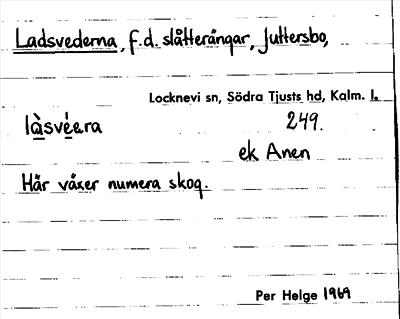 Ladsvederna, f.d. slåtterängar, Juttersbo,
Locknevi sn, Södra Tjusts hd, Kalm. l.
làsvéera 249.
ek Anen
Här växer numera skog.
Per Helge 1969